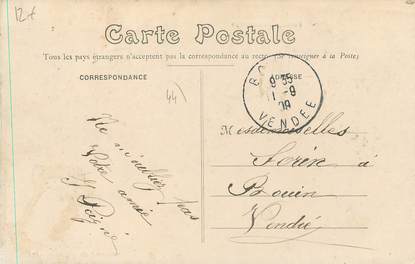 12 €
Carte Postale
Tous les pays étrangers n'acceptent pas la correspondance au recto (Se renseigner à la Poste)
CORRESPONDANCE
44
BO
9 35
1-9
09
VENDÉE
Mesdemoiselles
Sorin à
Bouin
Vendée
Ne m'oubliez pas
Votre amie